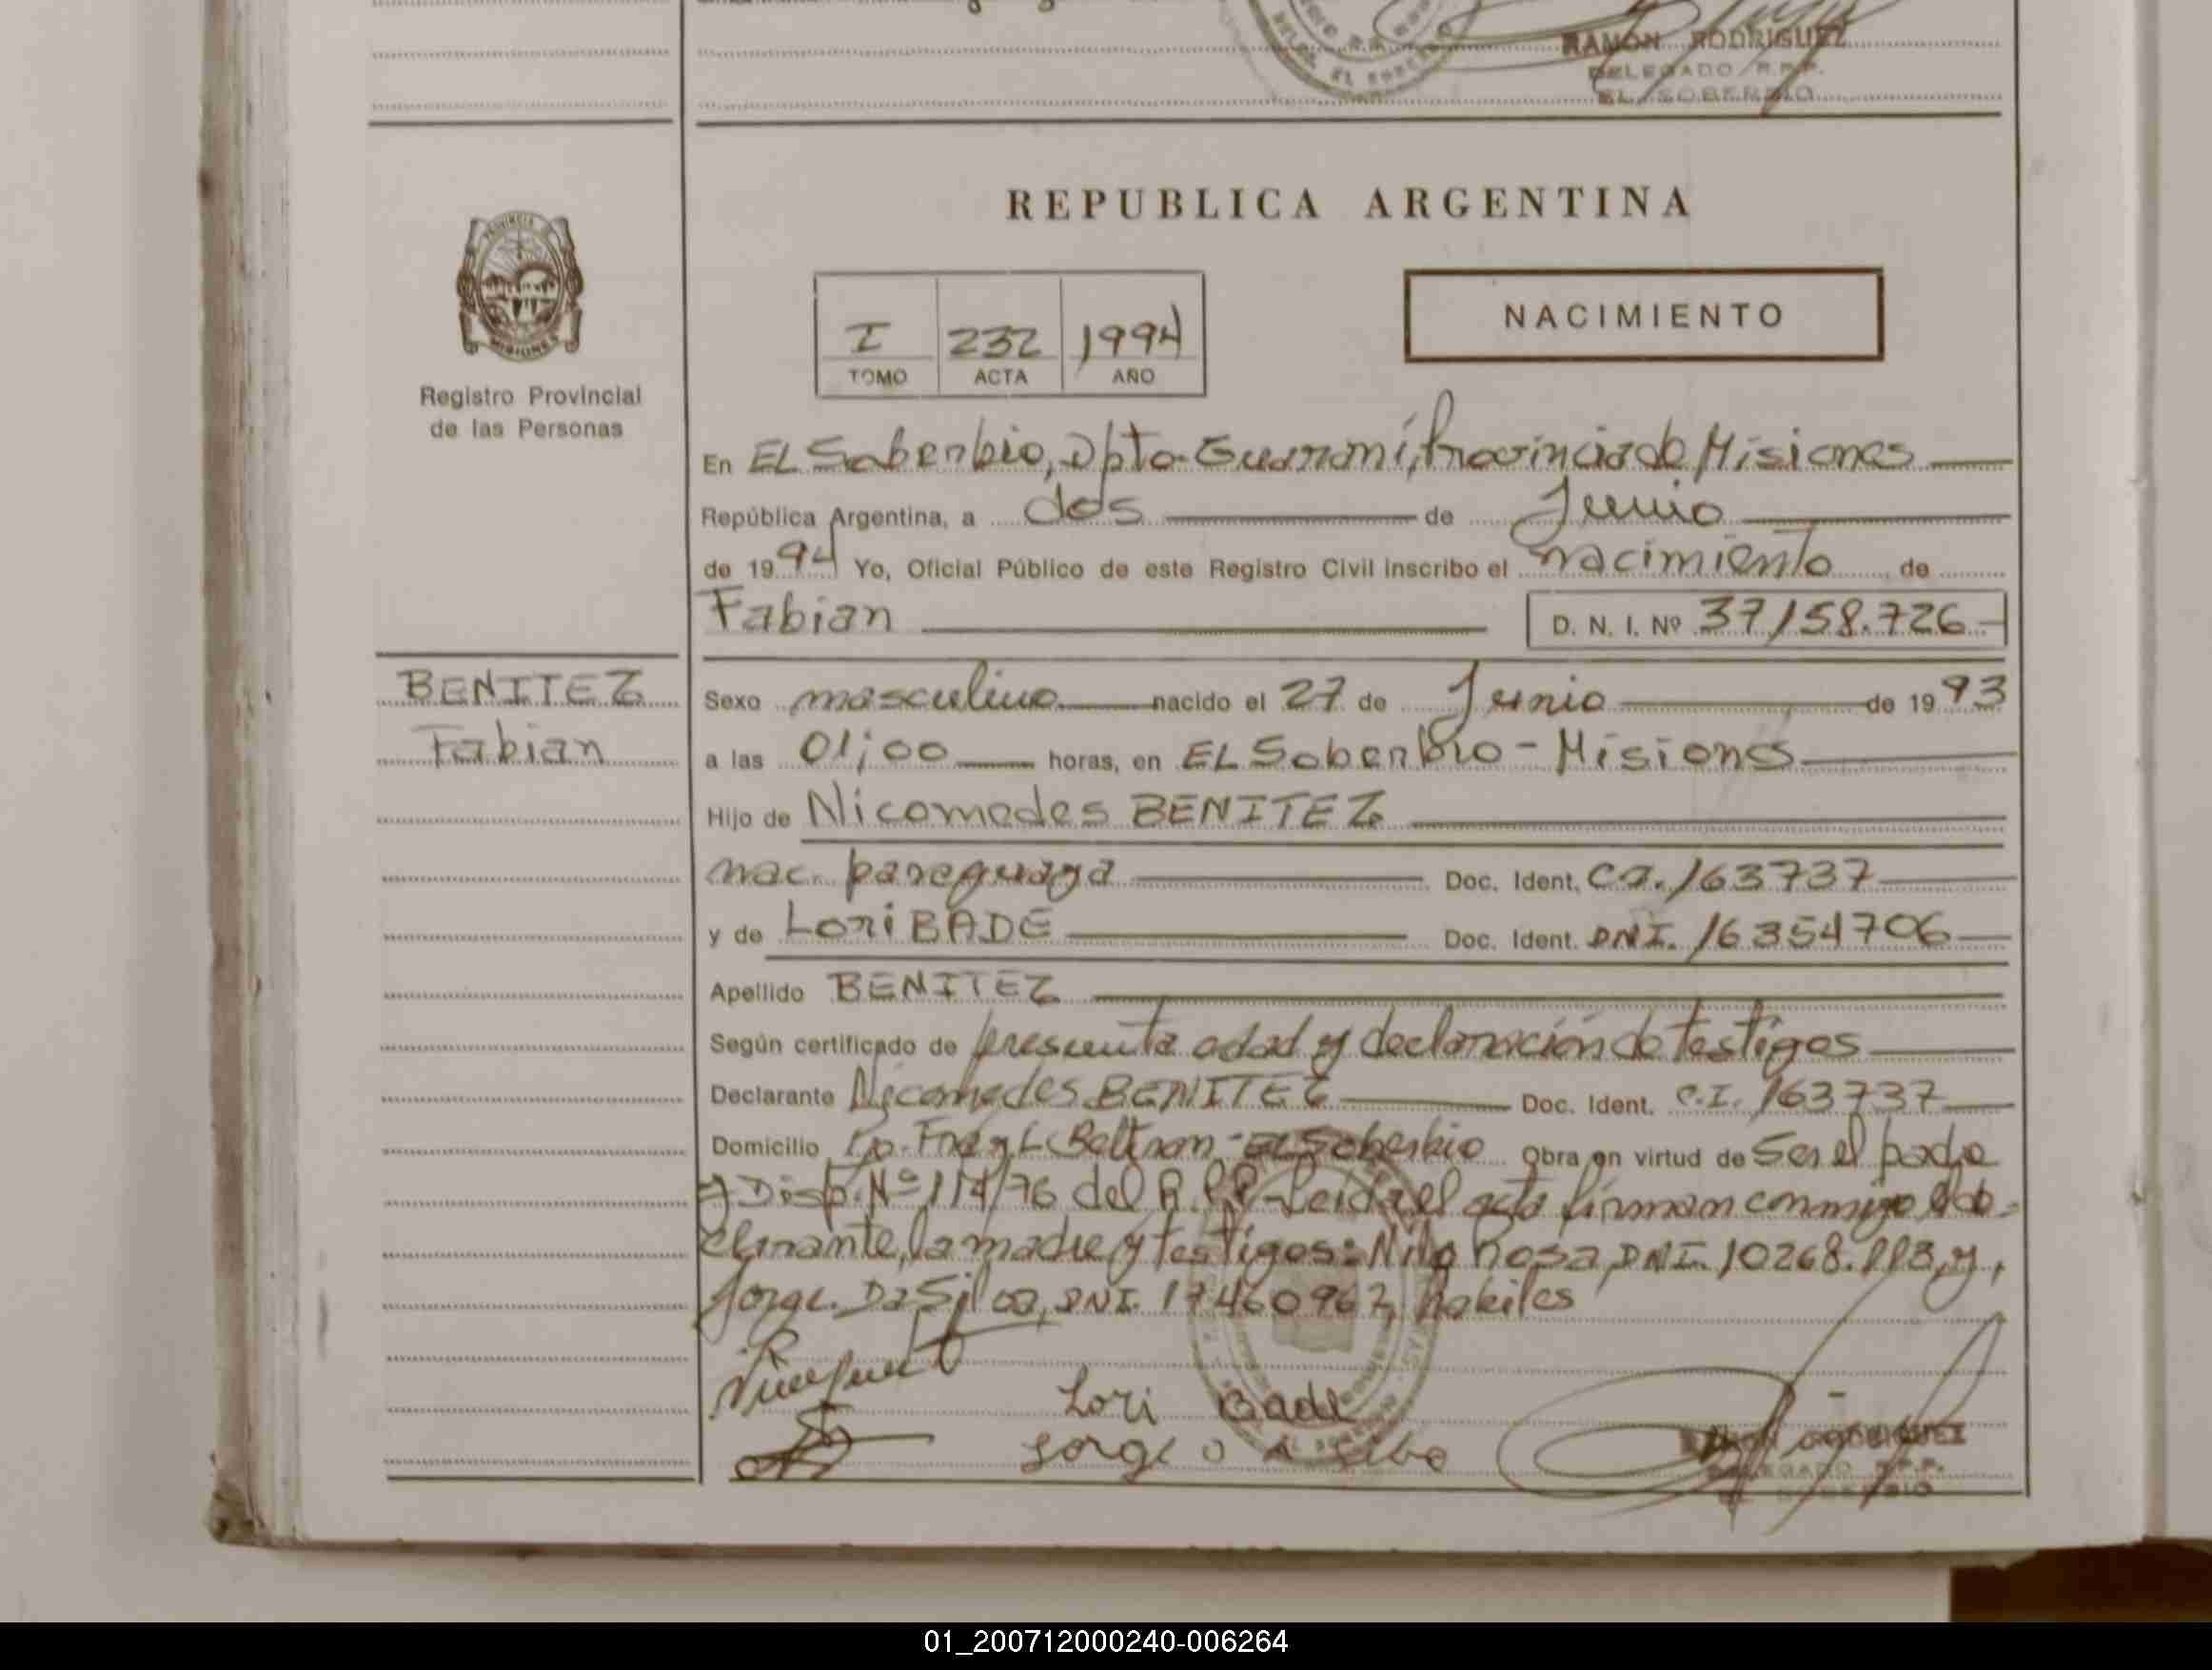 RAMON RODRIGUEZ
DELEGADO R.P.P.
EL SOBERBIO
REPUBLICA ARGENTINA
PROVINCIA DE
MISIONES
Registro Provincial
de las Personas
I 232 1994
TOMO ACTA AÑO
NACIMIENTO
En EL Soberbio, Dpto. Guaraní, Provincia de Misiones
República Argentina, a dos de Junio
de 1994 Yo, Oficial Público de este Registro Civil inscribo el nacimiento de
Fabian D. N. I. Nº 37158.726.-
BENITEZ
Fabian
Sexo masculino nacido el 27 de Junio de 1993
a las 01;00 horas, en EL Soberbio - Misiones
Hijo de Nicomedes BENITEZ
nac. paraguaya Doc. Ident. C.I. 163737
y de Lori BADE Doc. Ident. DNI. 16354706
Apellido BENITEZ
Según certificado de presunta edad y declaración de testigos
Declarante Nicomedes BENITEZ Doc. Ident. C.I. 163737
Domicilio Pp. Fray L. Beltran - EL Soberbio Obra en virtud de Ser el padre
y Disp. Nº 114/76 del R.P.P. - Leida el acta firman conmigo el de-
clarante, la madre y testigos: Nilo Rosa, DNI. 10268. y,
Jorge Da Silva, DNI. 17460967, habiles
Lori Bade
Jorge Da Silva
RAMON RODRIGUEZ
DELEGADO R.P.P.
EL SOBERBIO
01_200712000240-006264